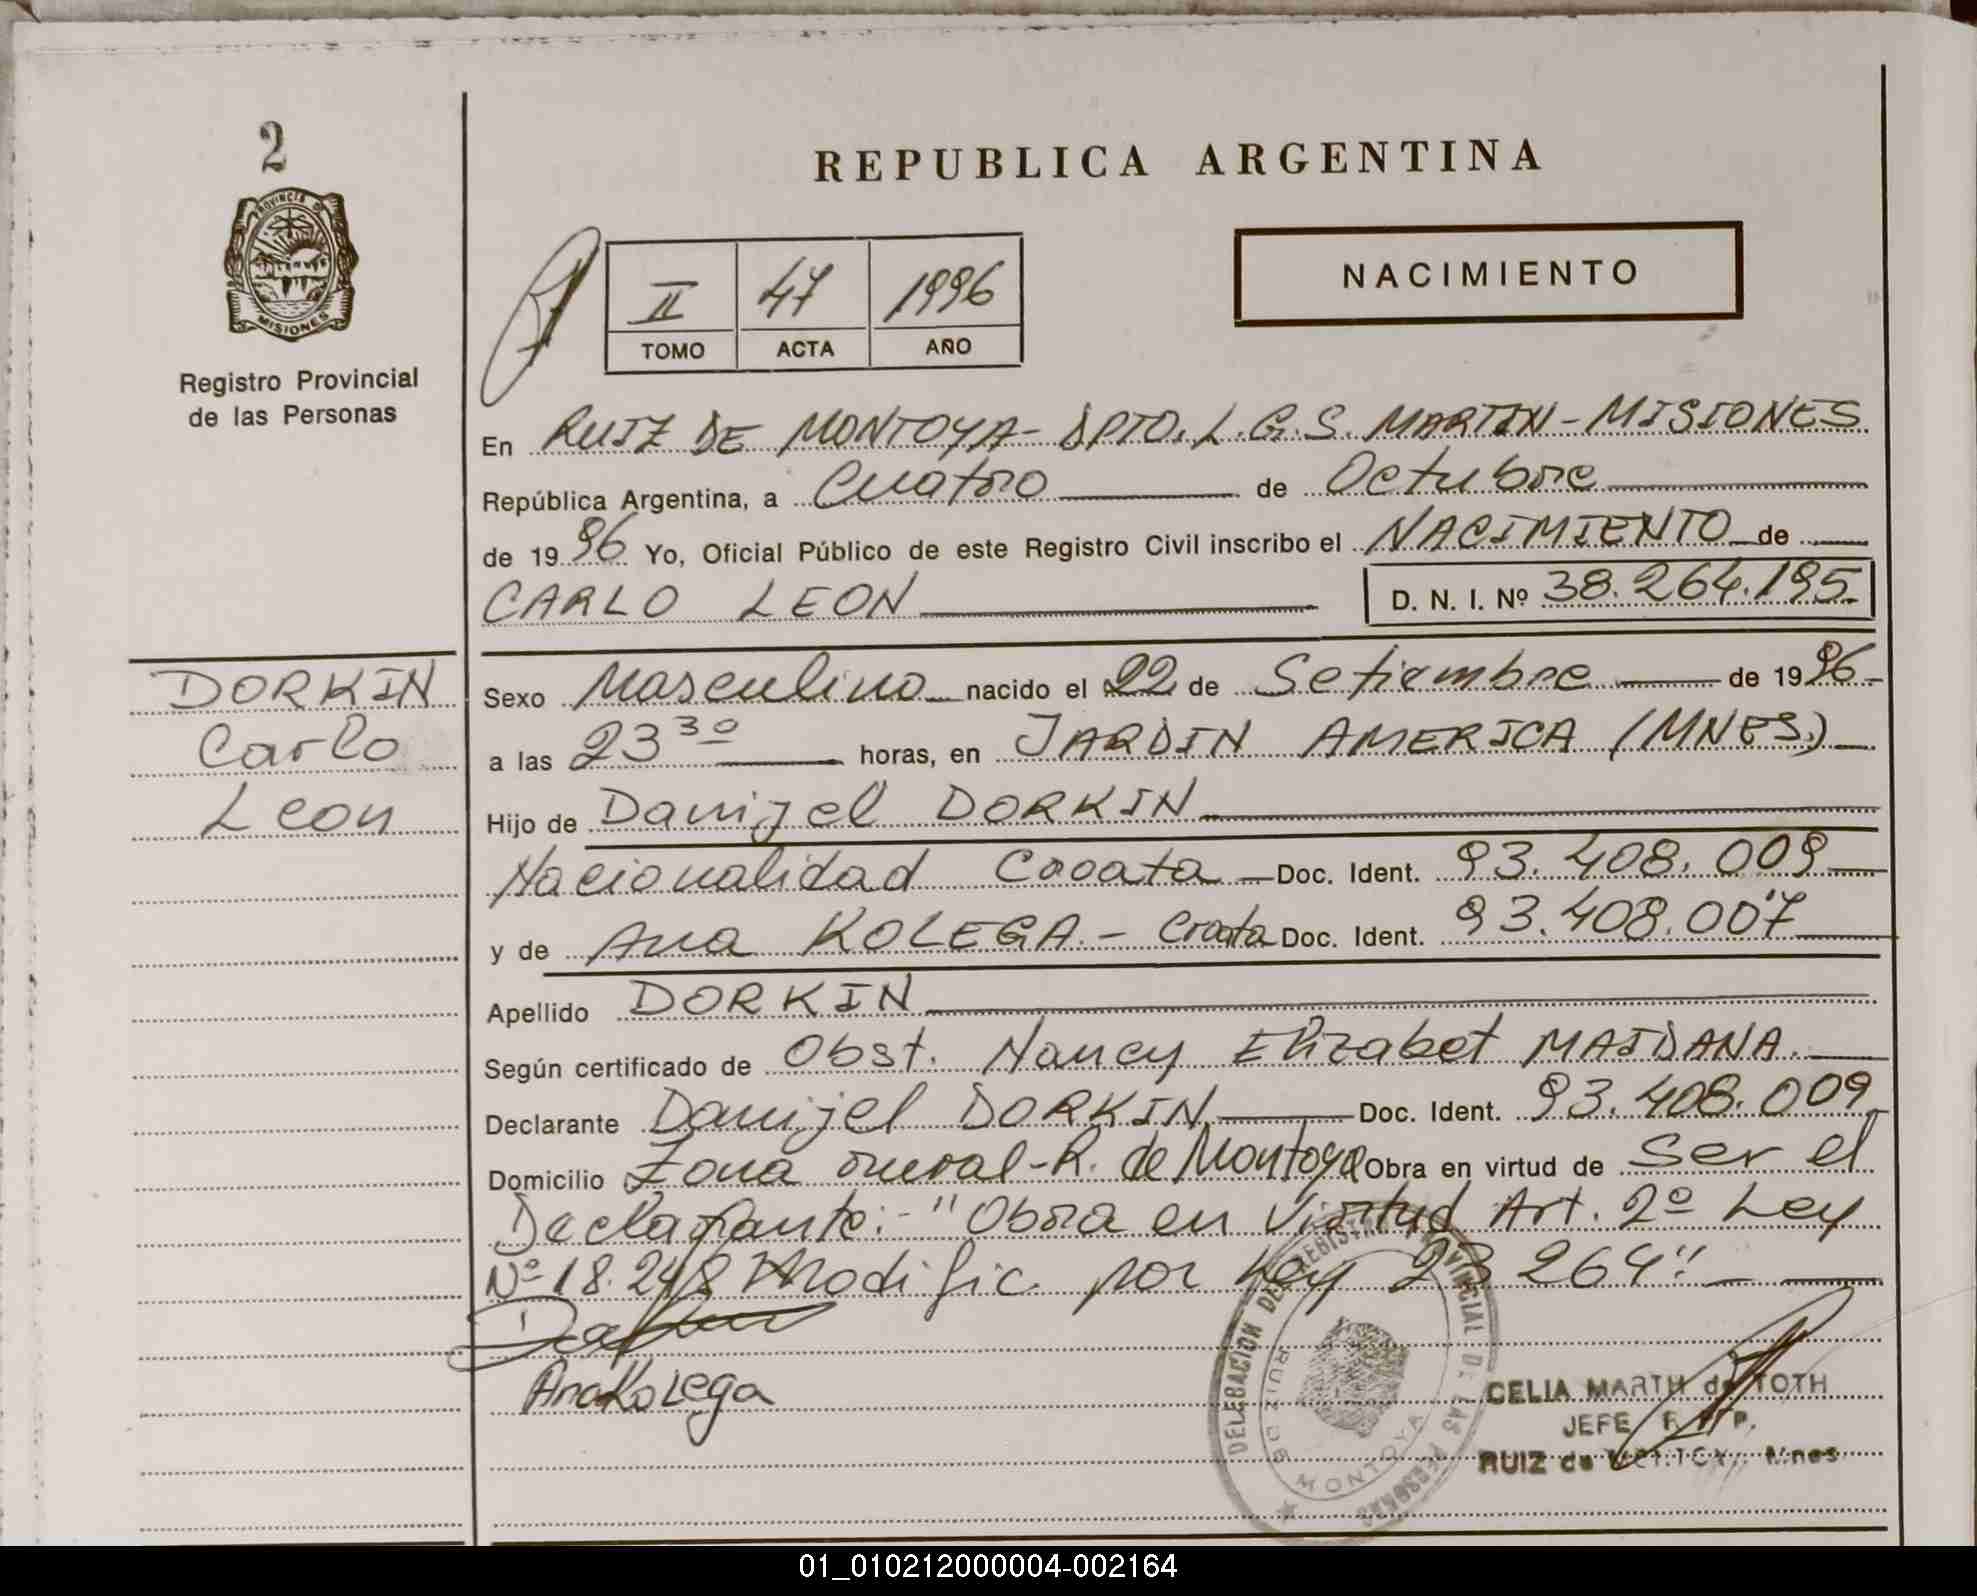 2
PROVINCIA DE
MISIONES
Registro Provincial
de las Personas
REPUBLICA ARGENTINA
II 47 1996
TOMO ACTA AÑO
NACIMIENTO
En RUIZ DE MONTOYA - DPTO. L.G.S. MARTIN - MISIONES
República Argentina, a Cuatro de Octubre
de 1996 Yo, Oficial Público de este Registro Civil inscribo el NACIMIENTO de
CARLO LEON D. N. I. Nº 38.264.195.
DORKIN
Carlo
Leon
Sexo Masculino nacido el 22 de Setiembre de 1996
a las 23 30 horas, en JARDIN AMERICA (MNES.)
Hijo de Danijel DORKIN
Nacionalidad Croata Doc. Ident. 93.408.009
y de Ana KOLEGA. - Croata Doc. Ident. 93.408.007
Apellido DORKIN
Según certificado de Obst. Nancy Elizabet MAIDANA.
Declarante Danijel DORKIN Doc. Ident. 93.408.009
Domicilio Zona rural - R. de Montoya Obra en virtud de Ser el
Declarante: - "Obra en Virtud Art. 2º Ley
Nº 18.248 Modific. por Ley 23 264"
Ana Kolega
DELEGACION DEL REGISTRO PROVINCIAL DE LAS PERSONAS
RUIZ DE MONTOYA
CELIA MARTH de TOTH
JEFE R. P. P.
RUIZ de MONTOYA Mnes
01_010212000004-002164